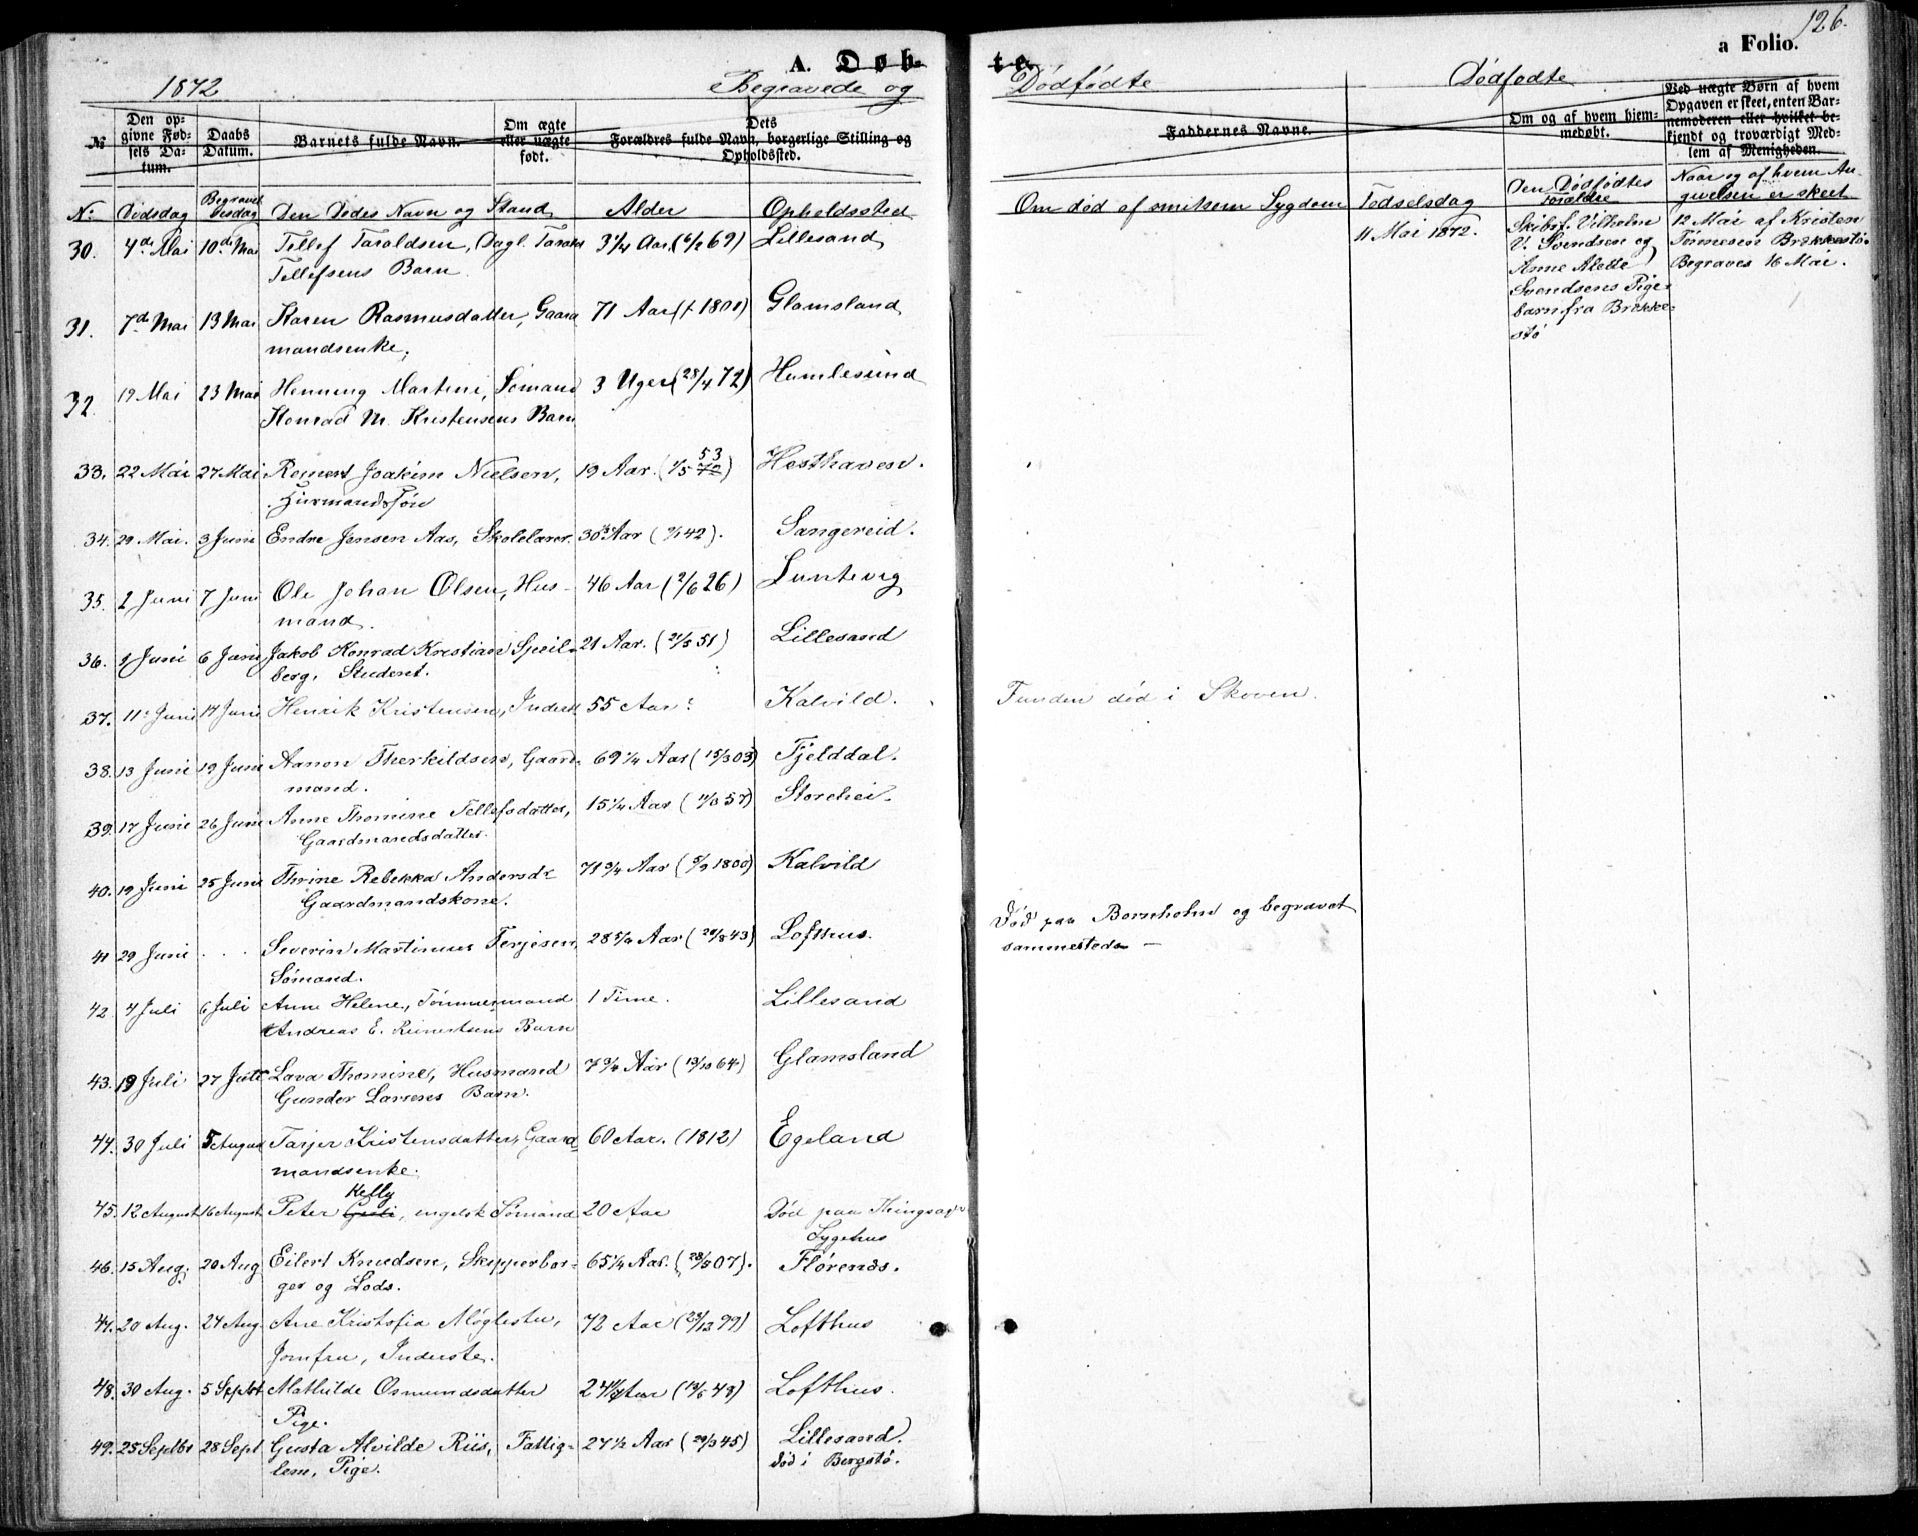 126.
a Folio.
A. Døb-
te.
1872
Begravede og
Dødfødte
Dødfødte
No
Den op-
givne Fød-
sels Da-
tum.
Daabs
Datum.
Barnets fulde Navn.
Om ægte
eller uægte
født.
Dets
Forældres fulde Navn, borgerlige Stilling og
Opholdssted.
Faddernes Navne.
Om og af hvem hjem-
medøbt.
Ved uægte Børn af hvem
Opgaven er skeet, enten Bar-
nemoderen eller hvilket be-
kjendt og troværdigt Med-
lem af Menigheden.
No Dødsdag Begravel-
sesdag Den Dødes Navn og Stand Alder Opholdssted
Om død af smitsom Sygdom Fødselsdag Den Dødfødtes
Forældre Naar og af hvem An-
givelsen er skeet
30. 4de Mai 10de Mai Tellef Taraldsen, Dagl. Taralds 3 1/4 Aar (6/2 69) Lillesand
Tellefsens Barn
11 Mai 1872.
Skibsf. Vilhelm
V. Svendsen og
Anne Alette
Svendsens Pige-
barn fra Brekke-
stø
12 Mai af Kristen
Tønnesen Brekkestø.
Begraves 16 Mai.
31. 7de Mai 13 Mai Karen Rasmusdatter, Gaard 71 Aar (1801) Glamsland
mandsenke.
32. 19 Mai 23 Mai Henning Martini, Sømand 3 Uger (28/4 72) Humlesund
Konrad M. Kristensens Barn
33. 22 Mai 27 Mai Reinert Joakim Nielsen, 19 Aar. (1/5 72 53) Hesthaven.
Huusmandssøn
34. 29 Mai. 3 Juni Endre Jensen Aas, Skolelærer. 30 Aar ( 42). Sangereid.
35. 2 Juni 7 Juni Ole Johan Olsen, Hus- 46 Aar (2/6 26) Luntevig
mand.
36. 1 Juni 6 Juni Jakob Konrad Kristian Speil- 21 Aar. (21/5 51) Lillesand
berg, Student.
37. 11. Juni 14 Juni Henrik Kristensen, Inderst 55 Aar: Kalvild.
Funden død i Skoven.
38. 13 Juni 19 Juni Aanon Therkildsen, Gaard- 69 1/4 Aar (15/3 03) Fjelddal.
mand.
39. 17 Juni 26 Juni Anne Thomine Tellefsdatter, 15 1/4 Aar (11/3 57) Storehei.
Gaardmandsdatter.
40. 19 Juni 25 Juni Thrine Rebekka Andersdr 71 3/4 Aar (5/9 1800) Kalvild
Gaardmandskone.
41 29 Juni . . . Severin Martinus Terjesen, 28 5/6 Aar (29/8 43) Lofthus.
Sømand.
Død paa Bornholm og begravet
sammesteds —
42. 4 Juli 6 Juli Anne Helene, Tømmermand 1 Time. Lillesand
Andreas E. Reinertsens Barn
43. 19 Juli 27 Juli Lava Thomine, Husmand 7 3/4 Aar (13/10 64) Glamsland
Gunder Larsens Barn.
44. 30 Juli 5 August Tarjer Kristensdatter, Gaard 60 Aar. (1812) Egeland
mandsenke.
Kelly
45. 12 August 16 August Peter , engelsk Sømand 20 Aar Død paa Thingsager
Sygehus
46. 15 Aug. 20 Aug Eilert Knudsen, Skipperbor- 65 1/4 Aar. (28/5 07). Flørenes.
ger og Lods.
47. 20 Aug. 24 Aug. Ane Kristofia Møglestu, 72 Aar (23/12 99) Lofthus
Jomfru, Inderste.
48. 30 Aug. 5 Septbr Mathilde Osmundsdatter 24 Aar (13/5 48) Lofthus.
Pige.
49. 25 Septbr 28 Sept Gusta Alvilde Riis, Fattig- 27 1/2 Aar (29/3 45) Lillesand.
lem, Pige. død i Bergstø.